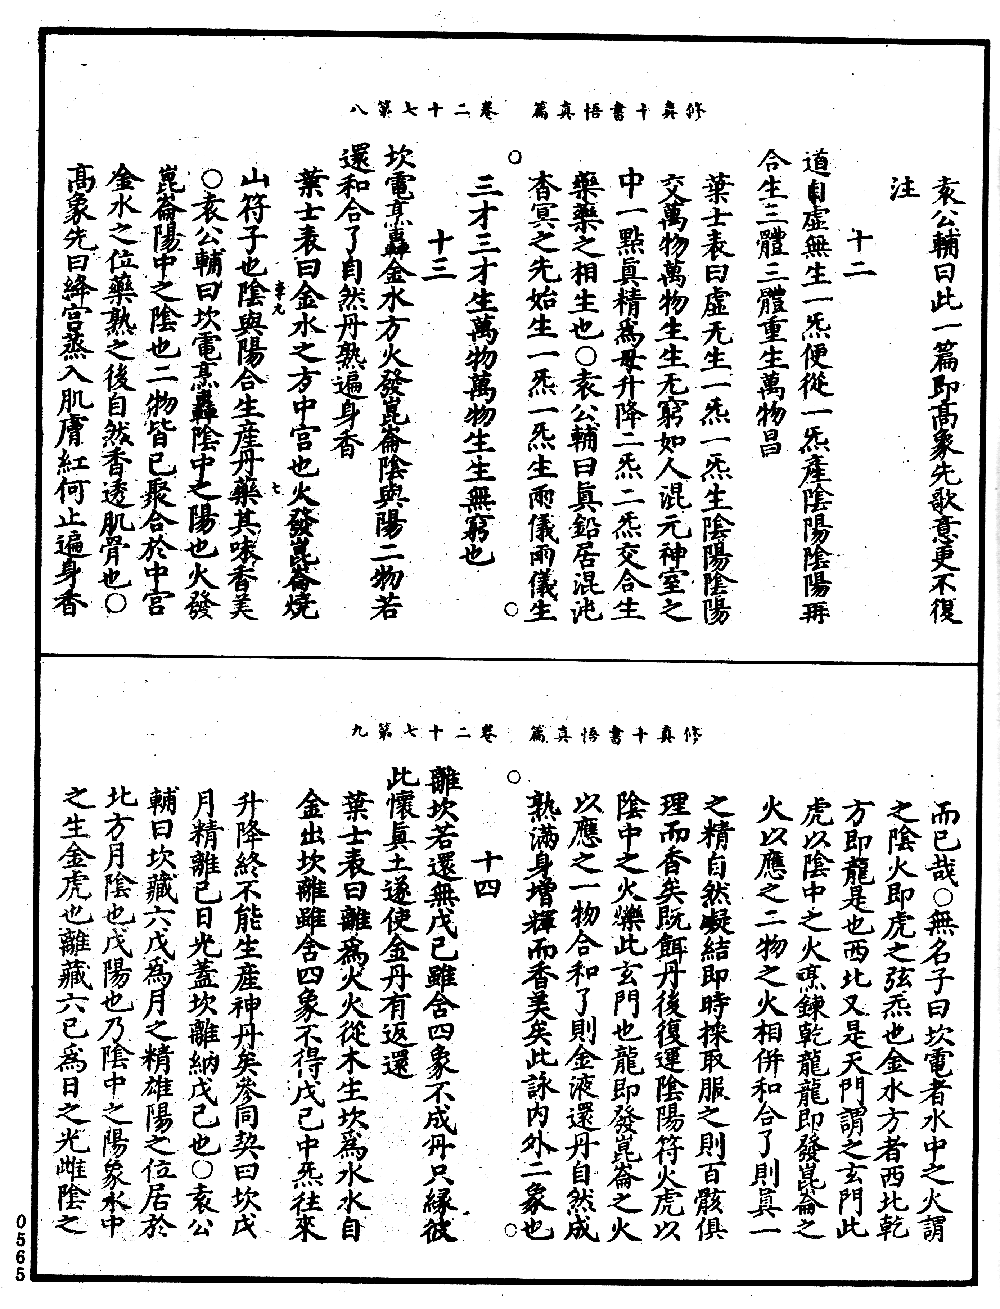 修真十書悟真篇　卷二十七第八
袁公輔曰此一篇即髙象先歌意更不復
注
十二
道自虛無生一炁便從一炁產陰陽陰陽再
合生三體三體重生萬物昌
葉士表曰虛无生一炁一炁生陰陽陰陽
交萬物萬物生生无窮如人混元神室之
中一點眞精爲母升降二炁二炁交合生
藥藥之相生也○袁公輔曰眞鉛居混沌
杳冥之先始生一炁一炁生兩儀兩儀生
三才三才生萬物萬物生生無窮也
十三
坎電烹轟金水方火發崑崙陰與陽二物若
還和合了自然丹熟遍身香
葉士表曰金水之方中宫也火發崑崙燒
山符子也陰與陽合生産丹藥其味香美
○袁公輔曰坎電烹轟陰中之陽也火發
崑崙陽中之陰也二物皆已聚合於中宫
金水之位藥熟之後自然香透肌骨也○
髙象先曰絳宫蒸入肌膚紅何止遍身香
修真十書悟真篇　卷二十七第九
而已哉○無名子曰坎電者水中之火謂
之陰火即虎之弦炁也金水方者西北乾
方即龍是也西北又是天門謂之玄門此
虎以陰中之火烹鍊乾龍龍即發崑崙之
火以應之二物之火相併和合了則眞一
之精自然凝結即時採取服之則百骸俱
理而香矣既餌丹後復運陰陽符火虎以
陰中之火爍此玄門也龍即發崑崙之火
以應之一物合和了則金液還丹自然成
熟滿身增輝而香美矣此詠内外二象也
十四
離坎若還無戊已雖含四象不成丹只緣彼
此懷眞土遂使金丹有返還
葉士表曰離爲火火從木生坎爲水水自
金出坎離雖含四象不得戊已中炁往來
升降終不能生産神丹矣參同契曰坎戊
月精離已日光蓋坎離納戊已也○袁公
輔曰坎藏六戊爲月之精雄陽之位居於
北方月陰也戊陽也乃陰中之陽象水中
之生金虎也離藏六已爲日之光雌陰之
0565